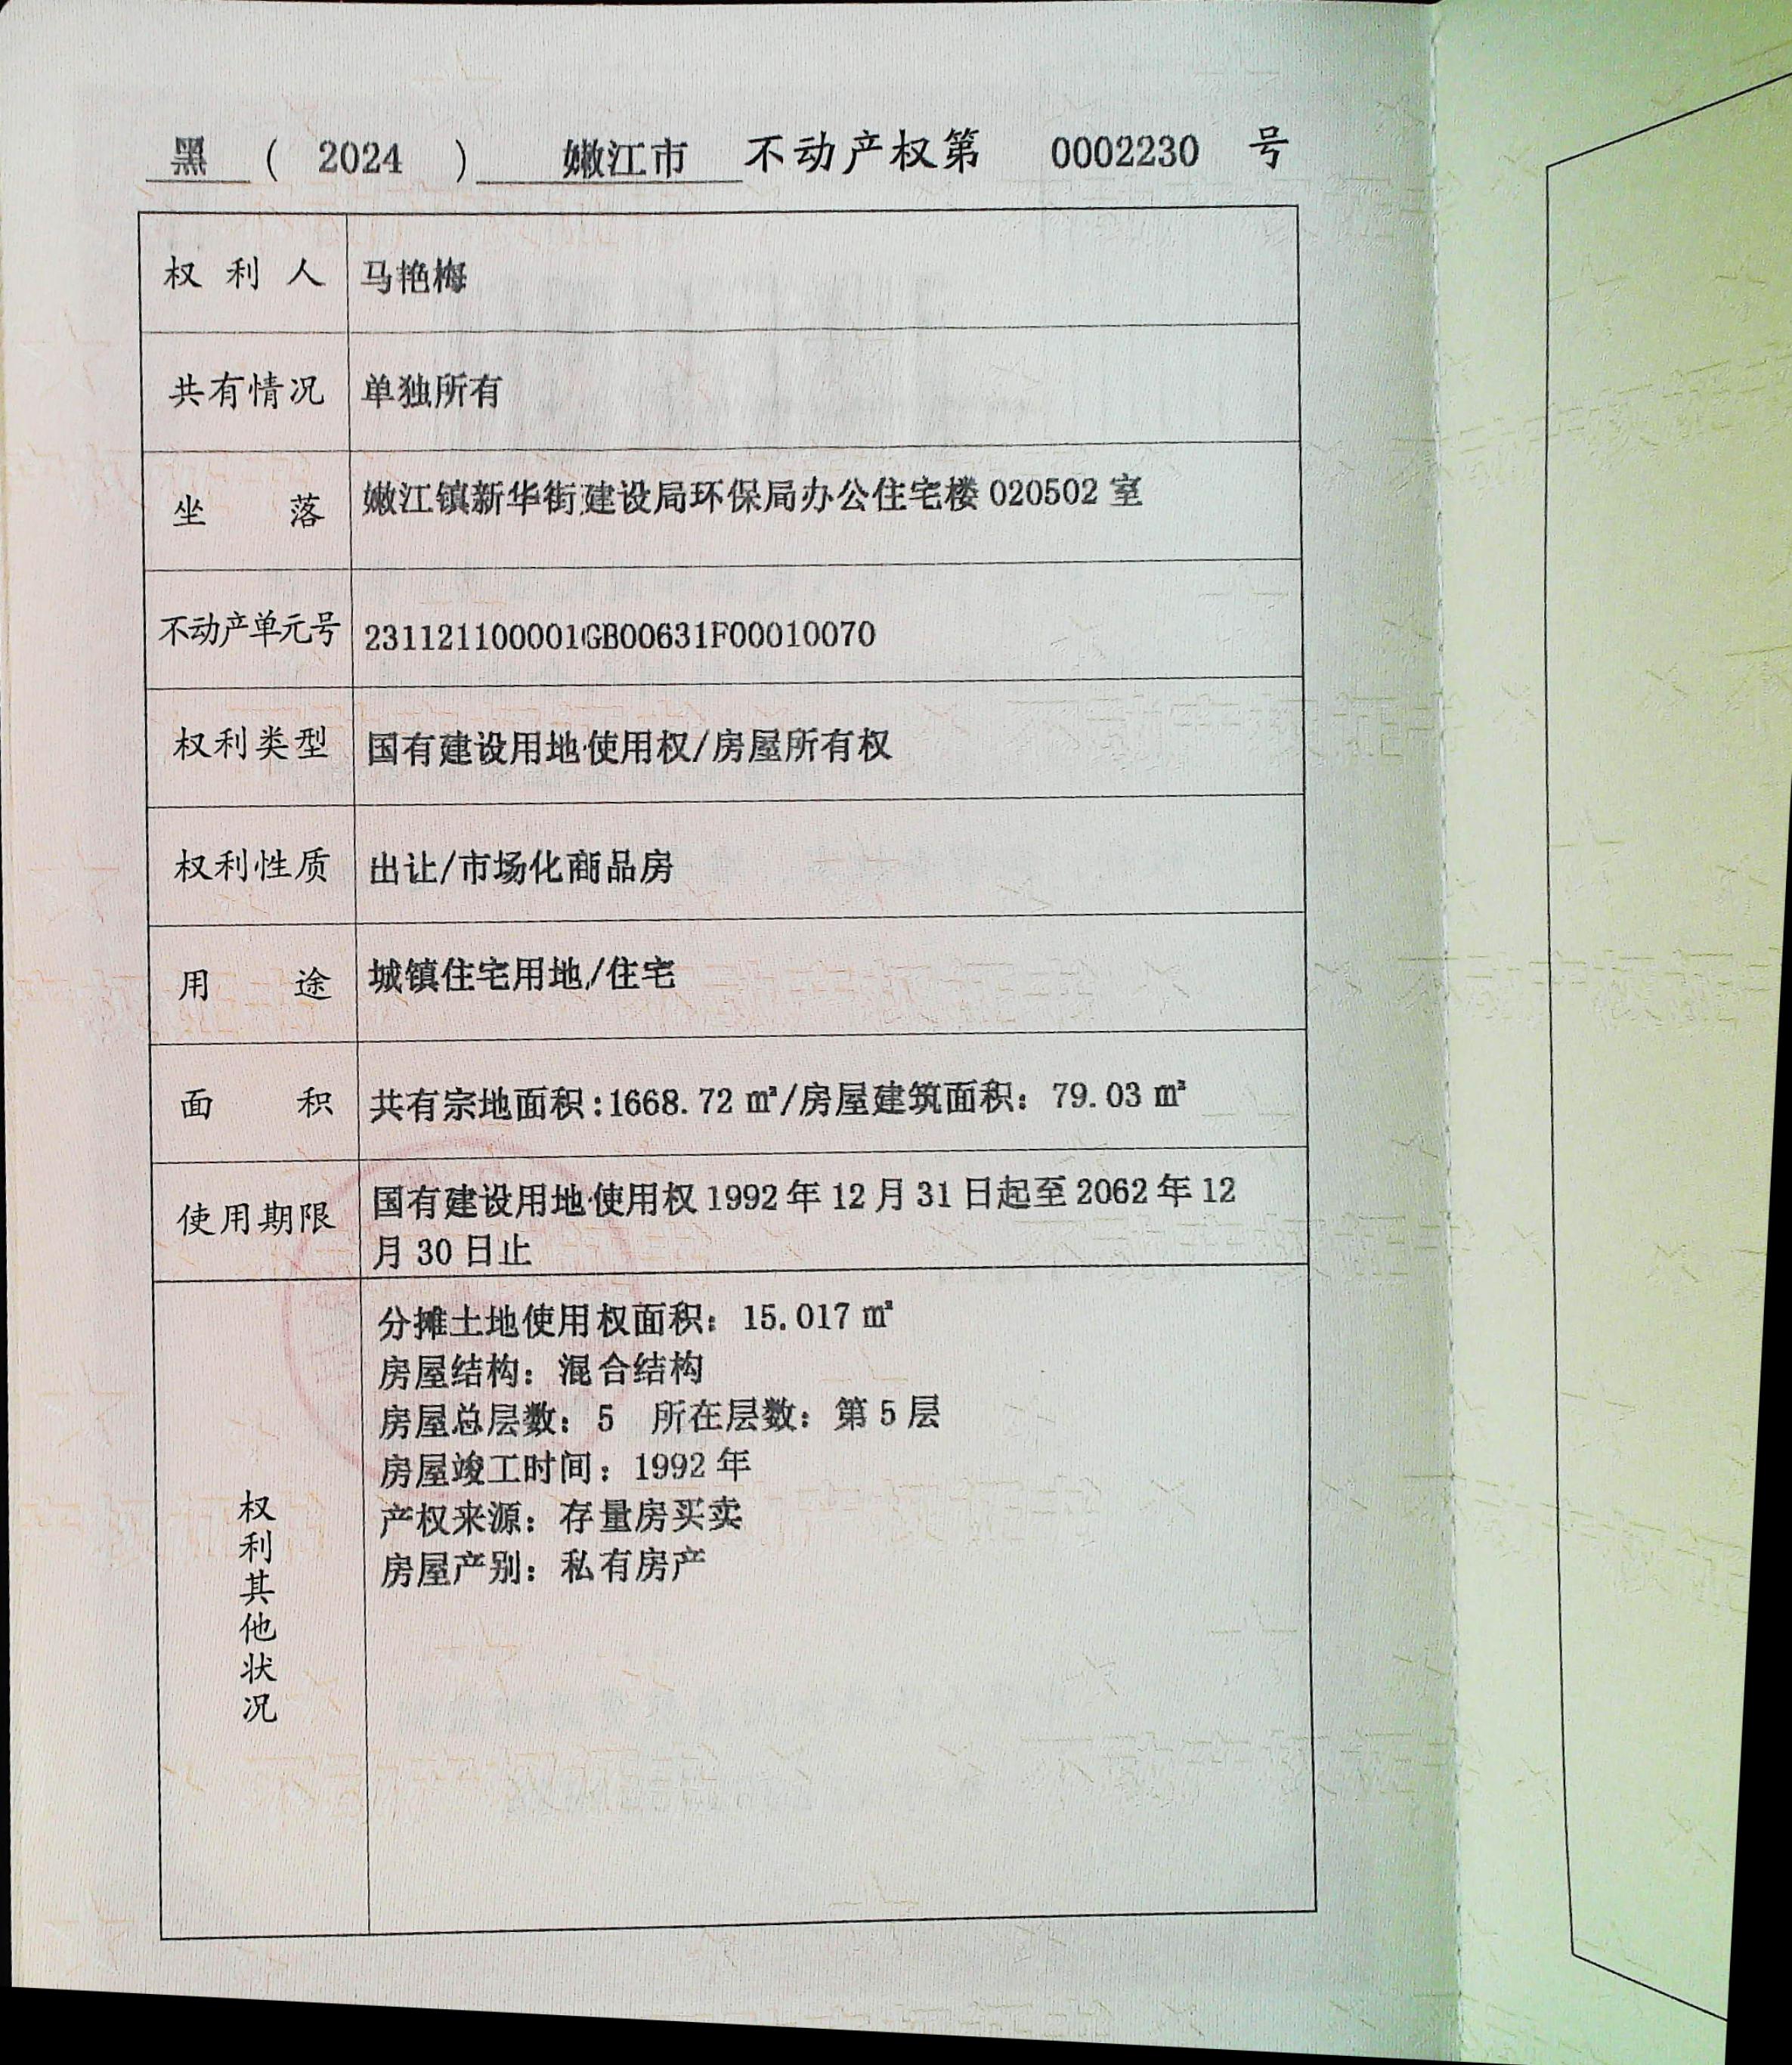 黑 ( 2024 ) 嫩江市 不动产权第 0002230 号
权利人 马艳梅
共有情况 单独所有
坐落 嫩江镇新华街建设局环保局办公住宅楼 020502 室
不动产单元号 231121100001GB00631F00010070
权利类型 国有建设用地使用权/房屋所有权
权利性质 出让/市场化商品房
用途 城镇住宅用地/住宅
面积 共有宗地面积:1668.72 ㎡/房屋建筑面积：79.03 ㎡
使用期限 国有建设用地使用权 1992 年 12 月 31 日起至 2062 年 12
月 30 日止
权利其他状况
分摊土地使用权面积：15.017 ㎡
房屋结构：混合结构
房屋总层数：5 所在层数：第 5 层
房屋竣工时间：1992 年
产权来源：存量房买卖
房屋产别：私有房产